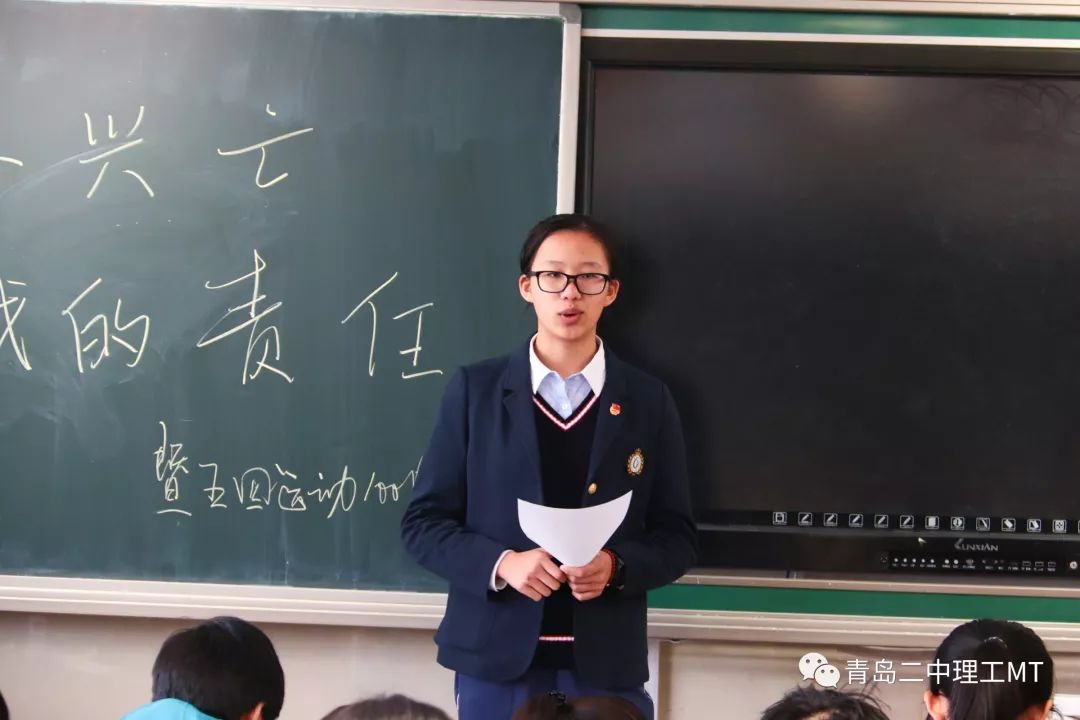 兴亡
我的责任
暨五四运动100
LUNXIAN
青岛二中理工MT